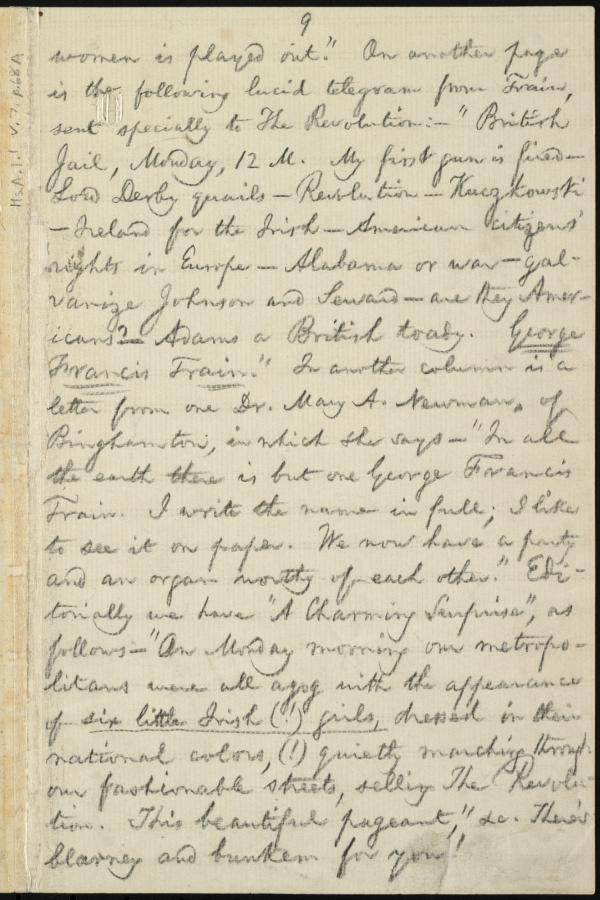 9
women is played out." On another page
is the following lucid telegram from Train,
sent specially to The Revolution:— "British
Jail, Monday, 12 M. My first gun is fired—
Lord Derby quails — Revolution — Kuczkowski
— Ireland for the Irish — American citizens'
rights in Europe — Alabama or war — gal-
vanize Johnson and Seward — are they Amer-
icans? — Adams a British toady. George
Francis Train." In another column is a
letter from one Dr. May A. Newman, of
Binghamton, in which she says — "In all
the earth there is but one George Francis
Train. I write the name in full; I like
to see it on paper. We now have a party
and an organ worthy of each other." Edi-
torially we have "A Charming Surprise", as
follows — "On Monday morning our metropo-
litans were all agog with the appearance
of six little Irish (!) girls, dressed in their
national colors, (!) quietly marching through
our fashionable streets, selling The Revolu-
tion. This beautiful pageant," &c. There's
blarney and bunkem for you!
Ms.A.1.1 v.7, p.68A